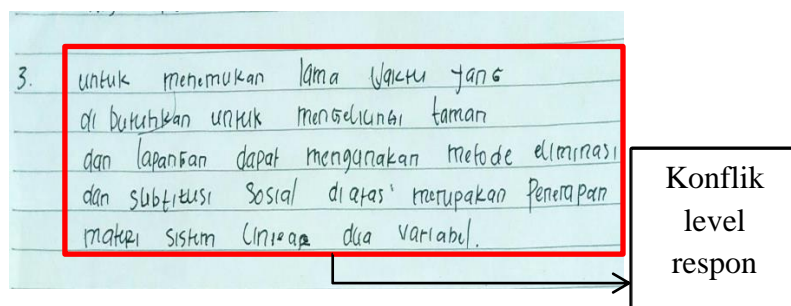 3. untuk menemukan lama waktu yang
di butuhkan untuk mengelilingi taman
dan lapangan dapat mengunakan metode eliminasi
dan subtitusi Sosial diatas merupakan Penerapan
materi sistem linear dua variabel.
Konflik
level
respon